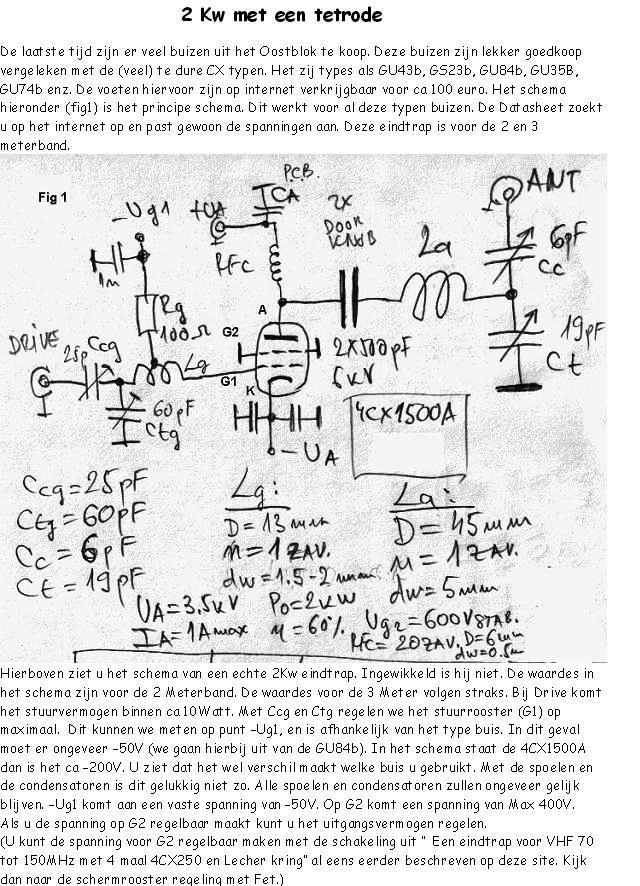 2 Kw met een tetrode
De laatste tijd zijn er veel buizen uit het Oostblok te koop. Deze buizen zijn lekker goedkoop
vergeleken met de (veel) te dure CX typen. Het zij types als GU43b, GS23b, GU84b, GU35B,
GU74b enz. De voeten hiervoor zijn op internet verkrijgbaar voor ca 100 euro. Het schema
hieronder (fig1) is het principe schema. Dit werkt voor al deze typen buizen. De Datasheet zoekt
u op het internet op en past gewoon de spanningen aan. Deze eindtrap is voor de 2 en 3
meterband.
Fig 1
P.C.B.
CA
ANT
-Ug1
+UA
2X
DOOR
6pF
Cc
La
RFC
1n
Rg
100Ω
A
G2
19pF
Ct
DRIVE
25p Ccg
Lg
G1
2X500pF
6KV
K
60pF
Ctg
4CX1500A
-UA
Ccg=25pF
Ctg=60pF
Cc=6pF
Ct=19pF
Lg:
D=13mm
n=1ZAV.
dw=1.5-2mm
La:
D=45mm
n=1ZAV.
dw=5mm
UA=3.5KV
IA=1Amax
Po=2KW
η=60%
Ug2=600V STAB.
RFC=20ZAV. D=6mm
dw=0.5m
Hierboven ziet u het schema van een echte 2Kw eindtrap. Ingewikkeld is hij niet. De waardes in
het schema zijn voor de 2 Meterband. De waardes voor de 3 Meter volgen straks. Bij Drive komt
het stuurvermogen binnen ca 10Watt. Met Ccg en Ctg regelen we het stuurrooster (G1) op
maximaal. Dit kunnen we meten op punt –Ug1, en is afhankelijk van het type buis. In dit geval
moet er ongeveer –50V (we gaan hierbij uit van de GU84b). In het schema staat de 4CX1500A
dan is het ca –200V. U ziet dat het wel verschil maakt welke buis u gebruikt. Met de spoelen en
de condensatoren is dit gelukkig niet zo. Alle spoelen en condensatoren zullen ongeveer gelijk
blijven. –Ug1 komt aan een vaste spanning van –50V. Op G2 komt een spanning van Max 400V.
Als u de spanning op G2 regelbaar maakt kunt u het uitgangsvermogen regelen.
(U kunt de spanning voor G2 regelbaar maken met de schakeling uit " Een eindtrap voor VHF 70
tot 150MHz met 4 maal 4CX250 en Lecher kring" al eens eerder beschreven op deze site. Kijk
dan naar de schermrooster regeling met Fet.)